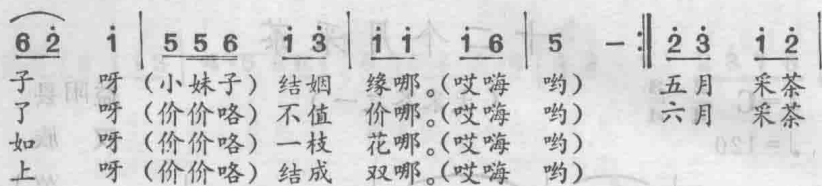 6 2̇ 1̇ | 5 5 6 1̇ 3̇ | 1̇ 1̇ 1̇ 6 | 5 － :‖ 2̇ 3̇ 1̇ 2̇
子 呀 (小妹子) 结姻 缘哪。(哎嗨 哟) 五月 采茶
了 呀 (价价咯) 不值 价哪。(哎嗨 哟) 六月 采茶
如 呀 (价价咯) 一枝 花哪。(哎嗨 哟)
上 呀 (价价咯) 结成 双哪。(哎嗨 哟)